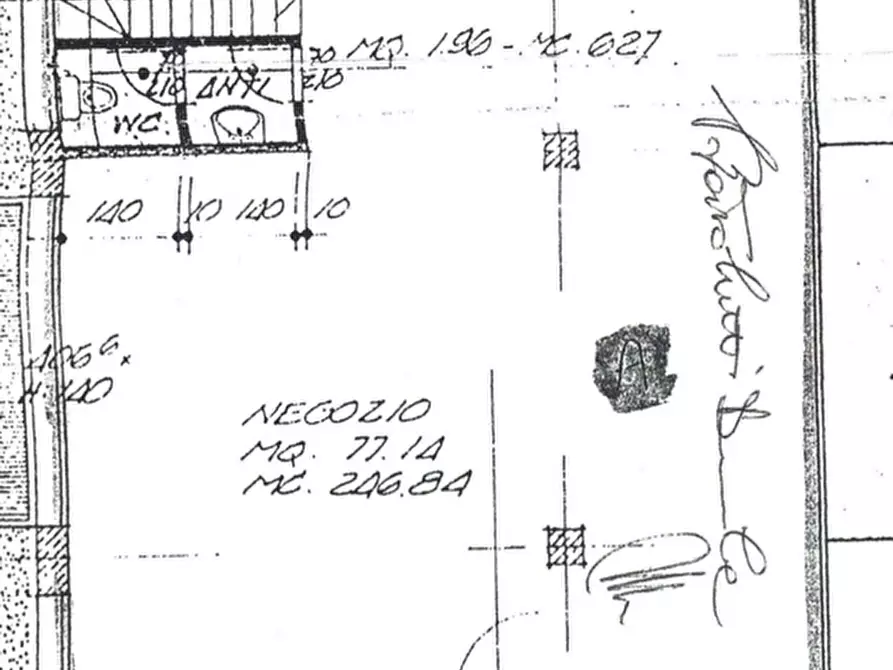 MQ. 1.96 - MC. 6.27
70
210
70
210
ANTI
W.C.
140 10 140 10
H. 140
NEGOZIO
MQ. 77.14
MC. 246.84
A